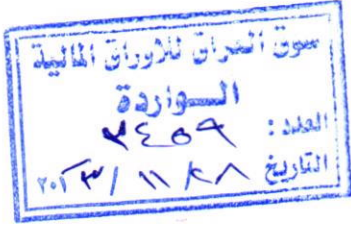 سوق العراق للاوراق المالية
الـواردة
العدد : ٣٤٥٩
التاريخ ٢٨ / ١١ / ٢٠٢٣